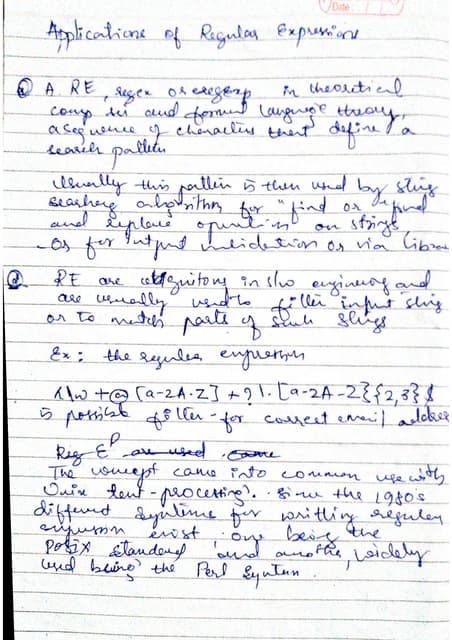 Date:
Applications of Regular Expressions
① A RE, regex or regexp in theoretical
comp sci and formal language theory,
a sequence of characters that define a
search pattern
Usually this pattern is then used by string
searching algorithm for "find or find
and replace operations on strings,
Or for input validation or via
② RE are in s/w engineering and
are usually used to filter input string
or to match parts of such strings
Ex: the regular expression
\w+@[a-2A-Z]+?\.[a-2A-Z}{2,3}$
is possible filter-for correct email address
Reg EP are used came
The concept came into common use with
Unix text-processing). Since the 1980's
different syntime for writting regular
expression exist, one being the
POSIX standard and another, widely
used being the Perl Syntan.